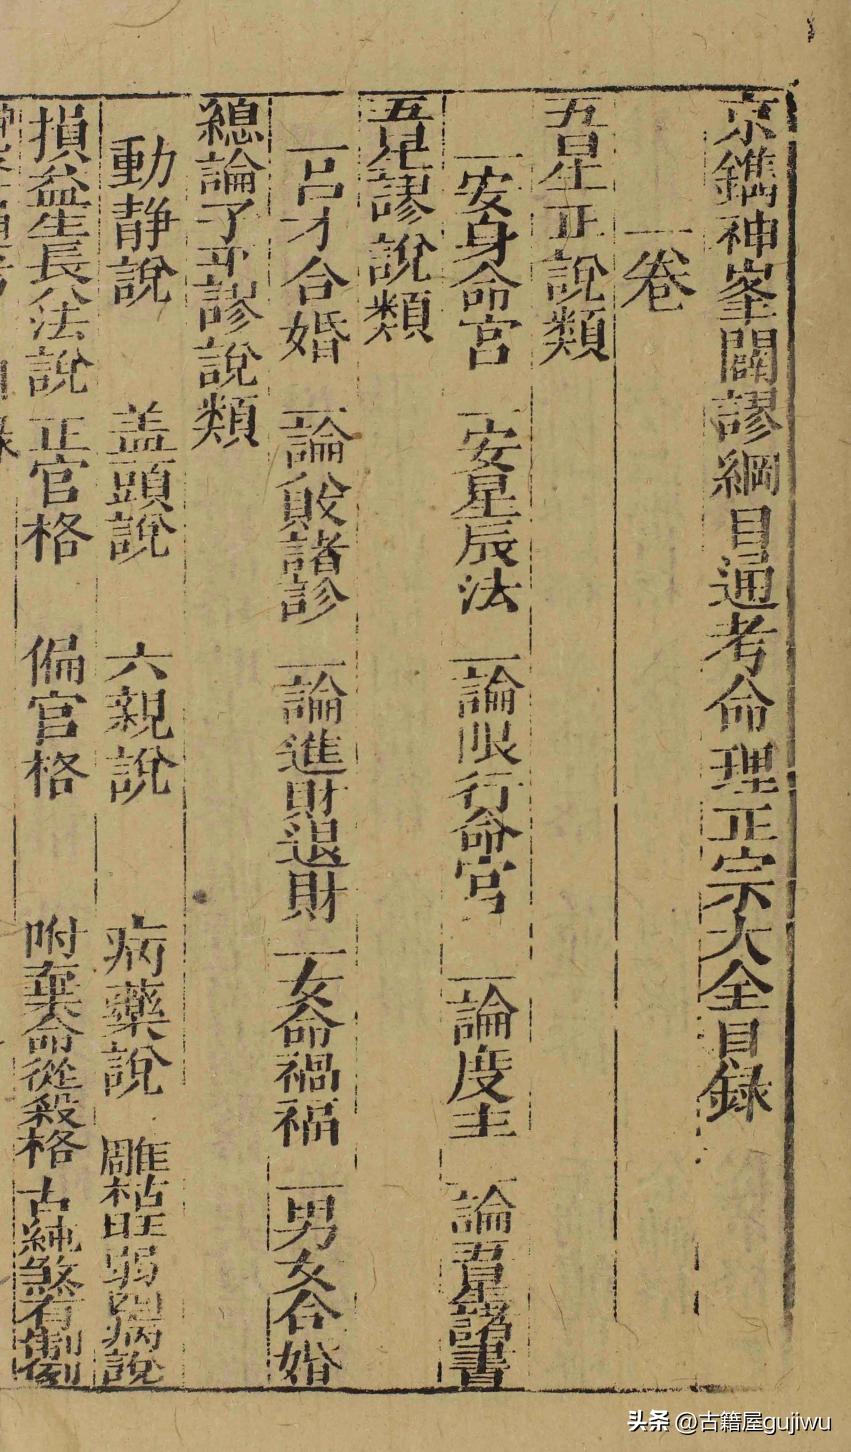 京鐫神峯闢謬綱目通考命理正宗大全目録
一卷
五星正說類
一安身命宮 一安星辰法 一論限行命宮 一論度主 一論五星諸書
五星謬說類
一呂才合婚 一論 諸 一論進財退財 一女命禍福 一男女合婚
總論子平謬說類
動静說 盖頭說 六親說 病藥說 雕枯旺弱四病說
損益生長八法說 正官格 偏官格 附棄命從殺格 古 煞有制
头条 @古籍屋gujiwu